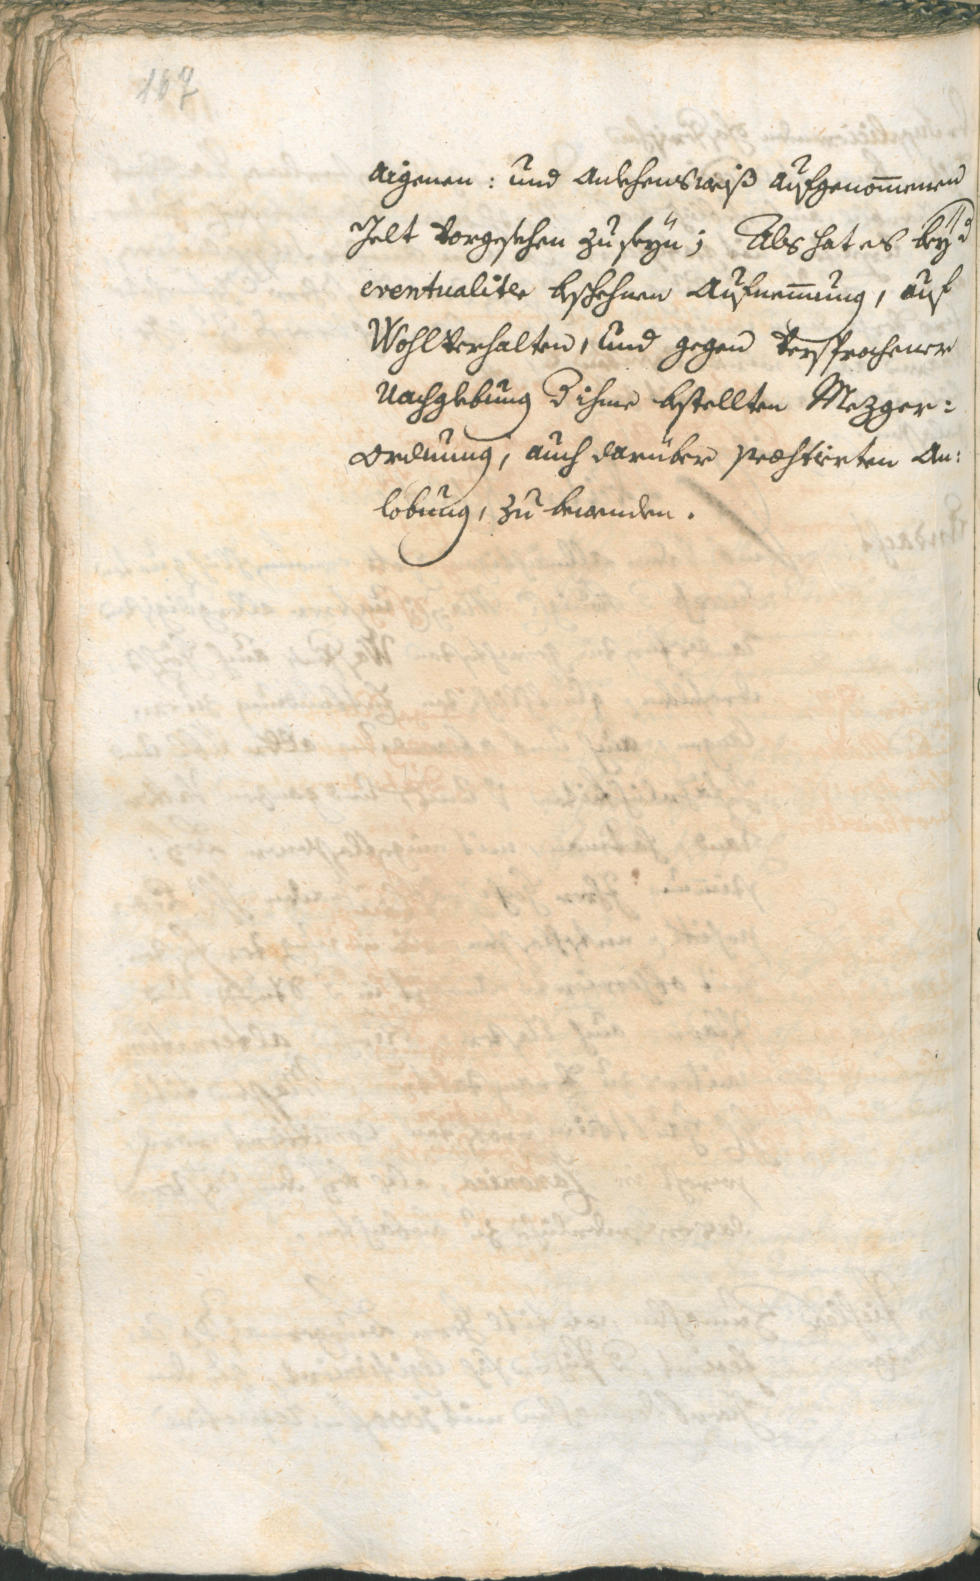 167
aigenen: und anlehensweiß aufgenom̄enen
Gelt vorgesehen zu seyn; Als hat es bey d
eventualiter beschehnen Aufnem̄ung, auf
Wohlverhalten, und gegen versprochener
Nachgebung d ihme bestellten Mezger:
ordnung, auch darüber præstierten An:
lobung, zu bewenden.